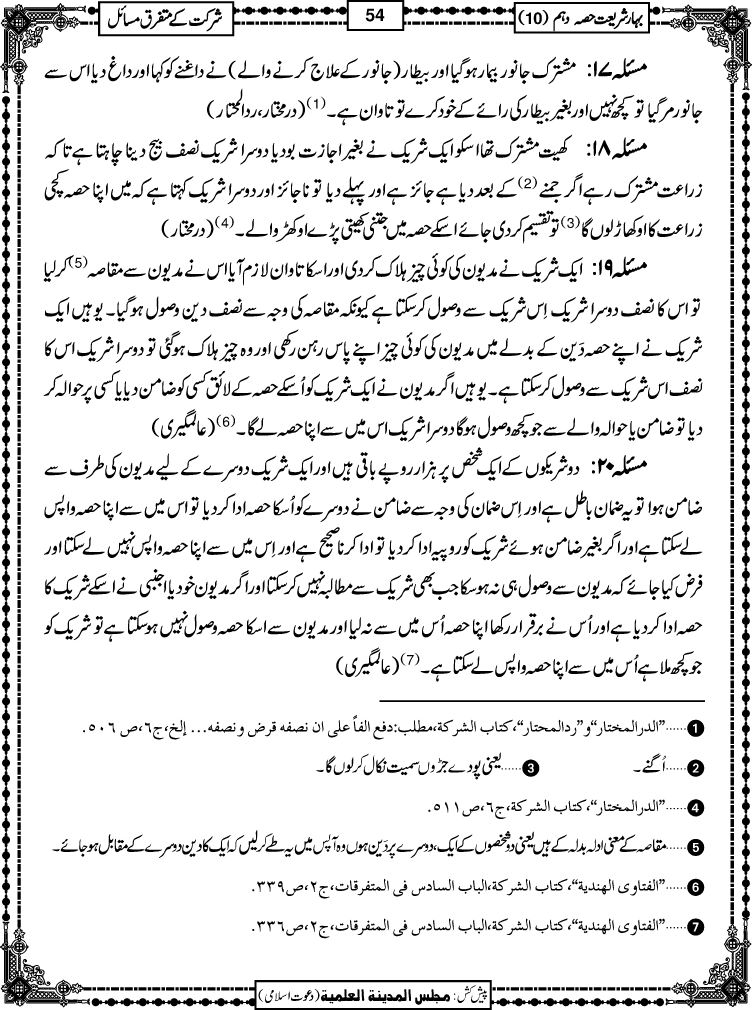 بہار شریعت حصہ دہم (10)
54
شرکت کے متفرق مسائل
مسئلہ ۱۷: مشترک جانور بیمار ہوگیا اور بیطار (جانور کے علاج کرنے والے) نے داغنے کو کہا اور داغ دیا اس سے
جانور مرگیا تو کچھ نہیں اور بغیر بیطار کی رائے کے خود کرے تو تاوان ہے۔(1) (درمختار، ردالمحتار)
مسئلہ ۱۸: کھیت مشترک تھا اسکو ایک شریک نے بغیر اجازت بودیا دوسرا شریک نصف بیج دینا چاہتا ہے تاکہ
زراعت مشترک رہے اگر جمنے (2) کے بعد دیا ہے جائز ہے اور پہلے دیا تو ناجائز اور دوسرا شریک کہتا ہے کہ میں اپنا حصہ کچی
زراعت کا اوکھاڑ لوں گا (3) تو تقسیم کردی جائے اسکے حصہ میں جتنی کھیتی پڑے اوکھڑوالے۔(4) (درمختار)
مسئلہ ۱۹: ایک شریک نے مدیون کی کوئی چیز ہلاک کردی اور اسکا تاوان لازم آیا اس نے مدیون سے مقاصہ (5) کرلیا
تو اس کا نصف دوسرا شریک اِس شریک سے وصول کرسکتا ہے کیونکہ مقاصہ کی وجہ سے نصف دین وصول ہوگیا۔ یوہیں ایک
شریک نے اپنے حصہ دَین کے بدلے میں مدیون کی کوئی چیز اپنے پاس رہن رکھی اور وہ چیز ہلاک ہوگئی تو دوسرا شریک اس کا
نصف اس شریک سے وصول کرسکتا ہے۔ یوہیں اگر مدیون نے ایک شریک کو اُسکے حصہ کے لائق کسی کو ضامن دیا یا کسی پر حوالہ کر
دیا تو ضامن یا حوالہ والے سے جو کچھ وصول ہوگا دوسرا شریک اس میں سے اپنا حصہ لے گا۔(6) (عالمگیری)
مسئلہ ۲۰: دو شریکوں کے ایک شخص پر ہزار روپے باقی ہیں اور ایک شریک دوسرے کے لیے مدیون کی طرف سے
ضامن ہوا تو یہ ضمان باطل ہے اور اِس ضمان کی وجہ سے ضامن نے دوسرے کو اُسکا حصہ ادا کردیا تو اس میں سے اپنا حصہ واپس
لے سکتا ہے اور اگر بغیر ضامن ہوئے شریک کو روپیہ ادا کردیا تو ادا کرنا صحیح ہے اور اِس میں سے اپنا حصہ واپس نہیں لے سکتا اور
فرض کیا جائے کہ مدیون سے وصول ہی نہ ہوسکا جب بھی شریک سے مطالبہ نہیں کرسکتا اور اگر مدیون خود یا اجنبی نے اسکے شریک کا
حصہ ادا کردیا ہے اور اُس نے برقرار رکھا اپنا حصہ اُس میں سے نہ لیا اور مدیون سے اسکا حصہ وصول نہیں ہوسکتا ہے تو شریک کو
جو کچھ ملا ہے اُس میں سے اپنا حصہ واپس لے سکتا ہے۔(7) (عالمگیری)
1 ......"الدرالمختار" و "ردالمحتار"، کتاب الشرکة، مطلب: دفع الفاً علی ان نصفه قرض و نصفه... إلخ، ج٦، ص ٥٠٦.
2 ......اُگنے۔ 3 ......یعنی پودے جڑوں سمیت نکال کرلوں گا۔
4 ......"الدرالمختار"، کتاب الشرکة، ج٦، ص ٥١١.
5 ......مقاصہ کے معنی ادلہ بدلہ کے ہیں یعنی دو شخصوں کے ایک، دوسرے پر دَین ہوں وہ آپس میں یہ طے کرلیں کہ ایک کا دین دوسرے کے مقابل ہوجائے۔
6 ......"الفتاوی الھندیة"، کتاب الشرکة، الباب السادس فی المتفرقات، ج٢، ص ٣٣٩.
7 ......"الفتاوی الھندیة"، کتاب الشرکة، الباب السادس فی المتفرقات، ج٢، ص ٣٣٦.
پیش کش: مجلس المدینة العلمیة (دعوت اسلامی)